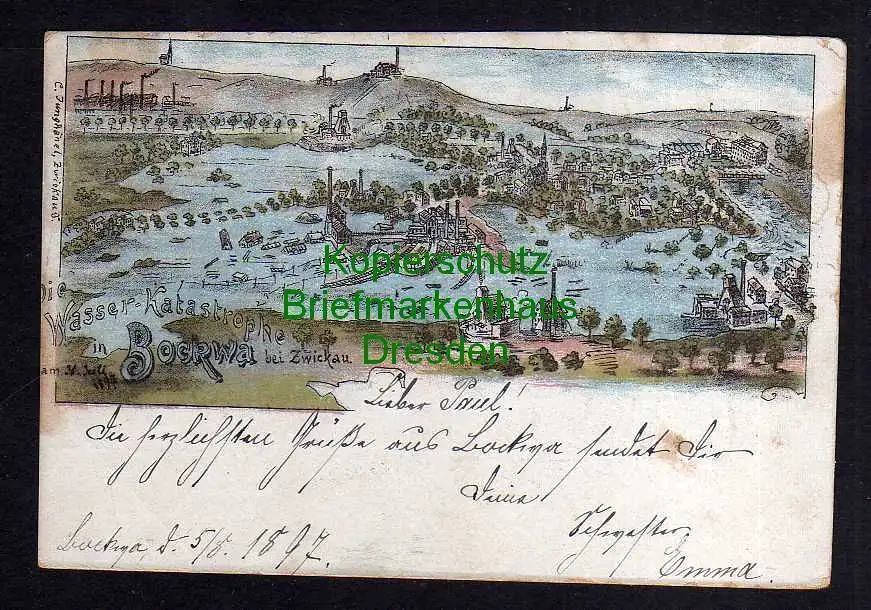 C. Junghänel, Zwickau
Kopierschutz
Briefmarkenhaus
Dresden
Die
Wasser-Katastrophe
in Bockwa bei Zwickau
am 31. Juli
1897
Lieber Paul!
Die herzlichsten Grüße aus Bockwa sendet Dir
Deine
Schwester
Emma.
Bockwa, d. 5/8. 1897.